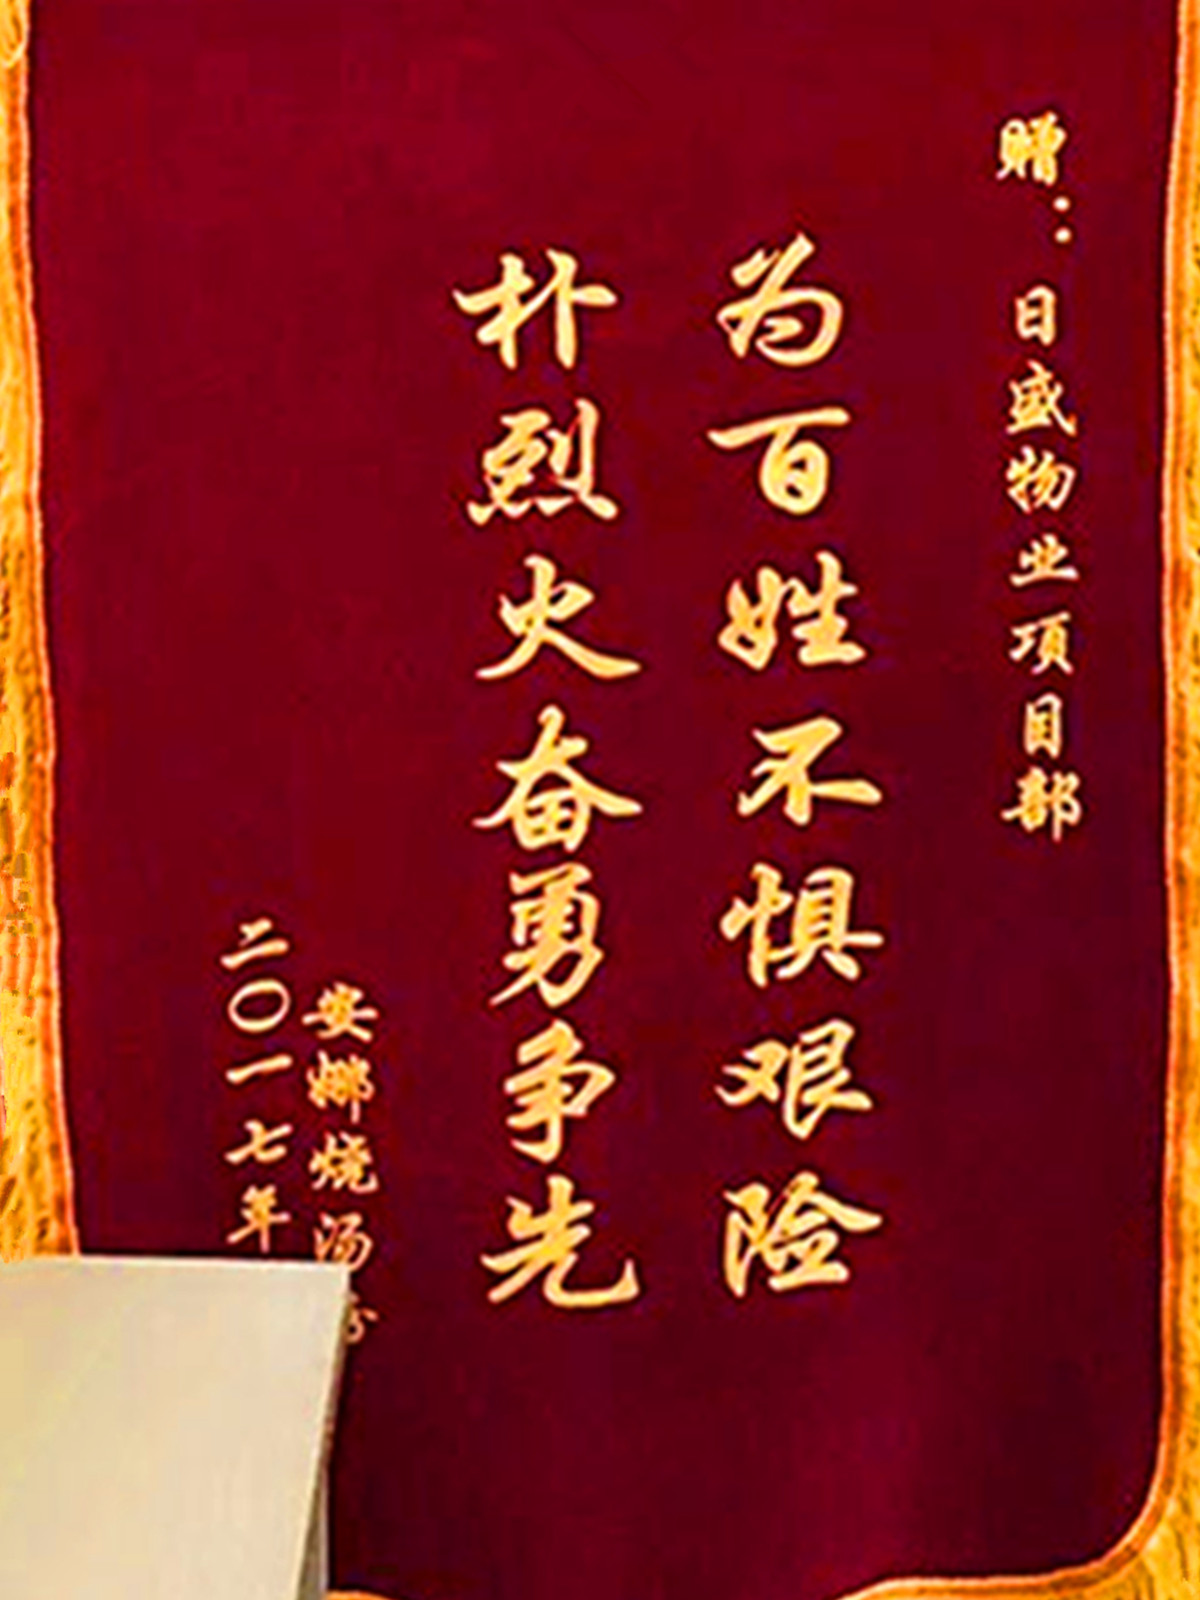 赠：日盛物业项目部
为百姓不惧艰险
朴烈火奋勇争先
安娜烧汤
二〇一七年